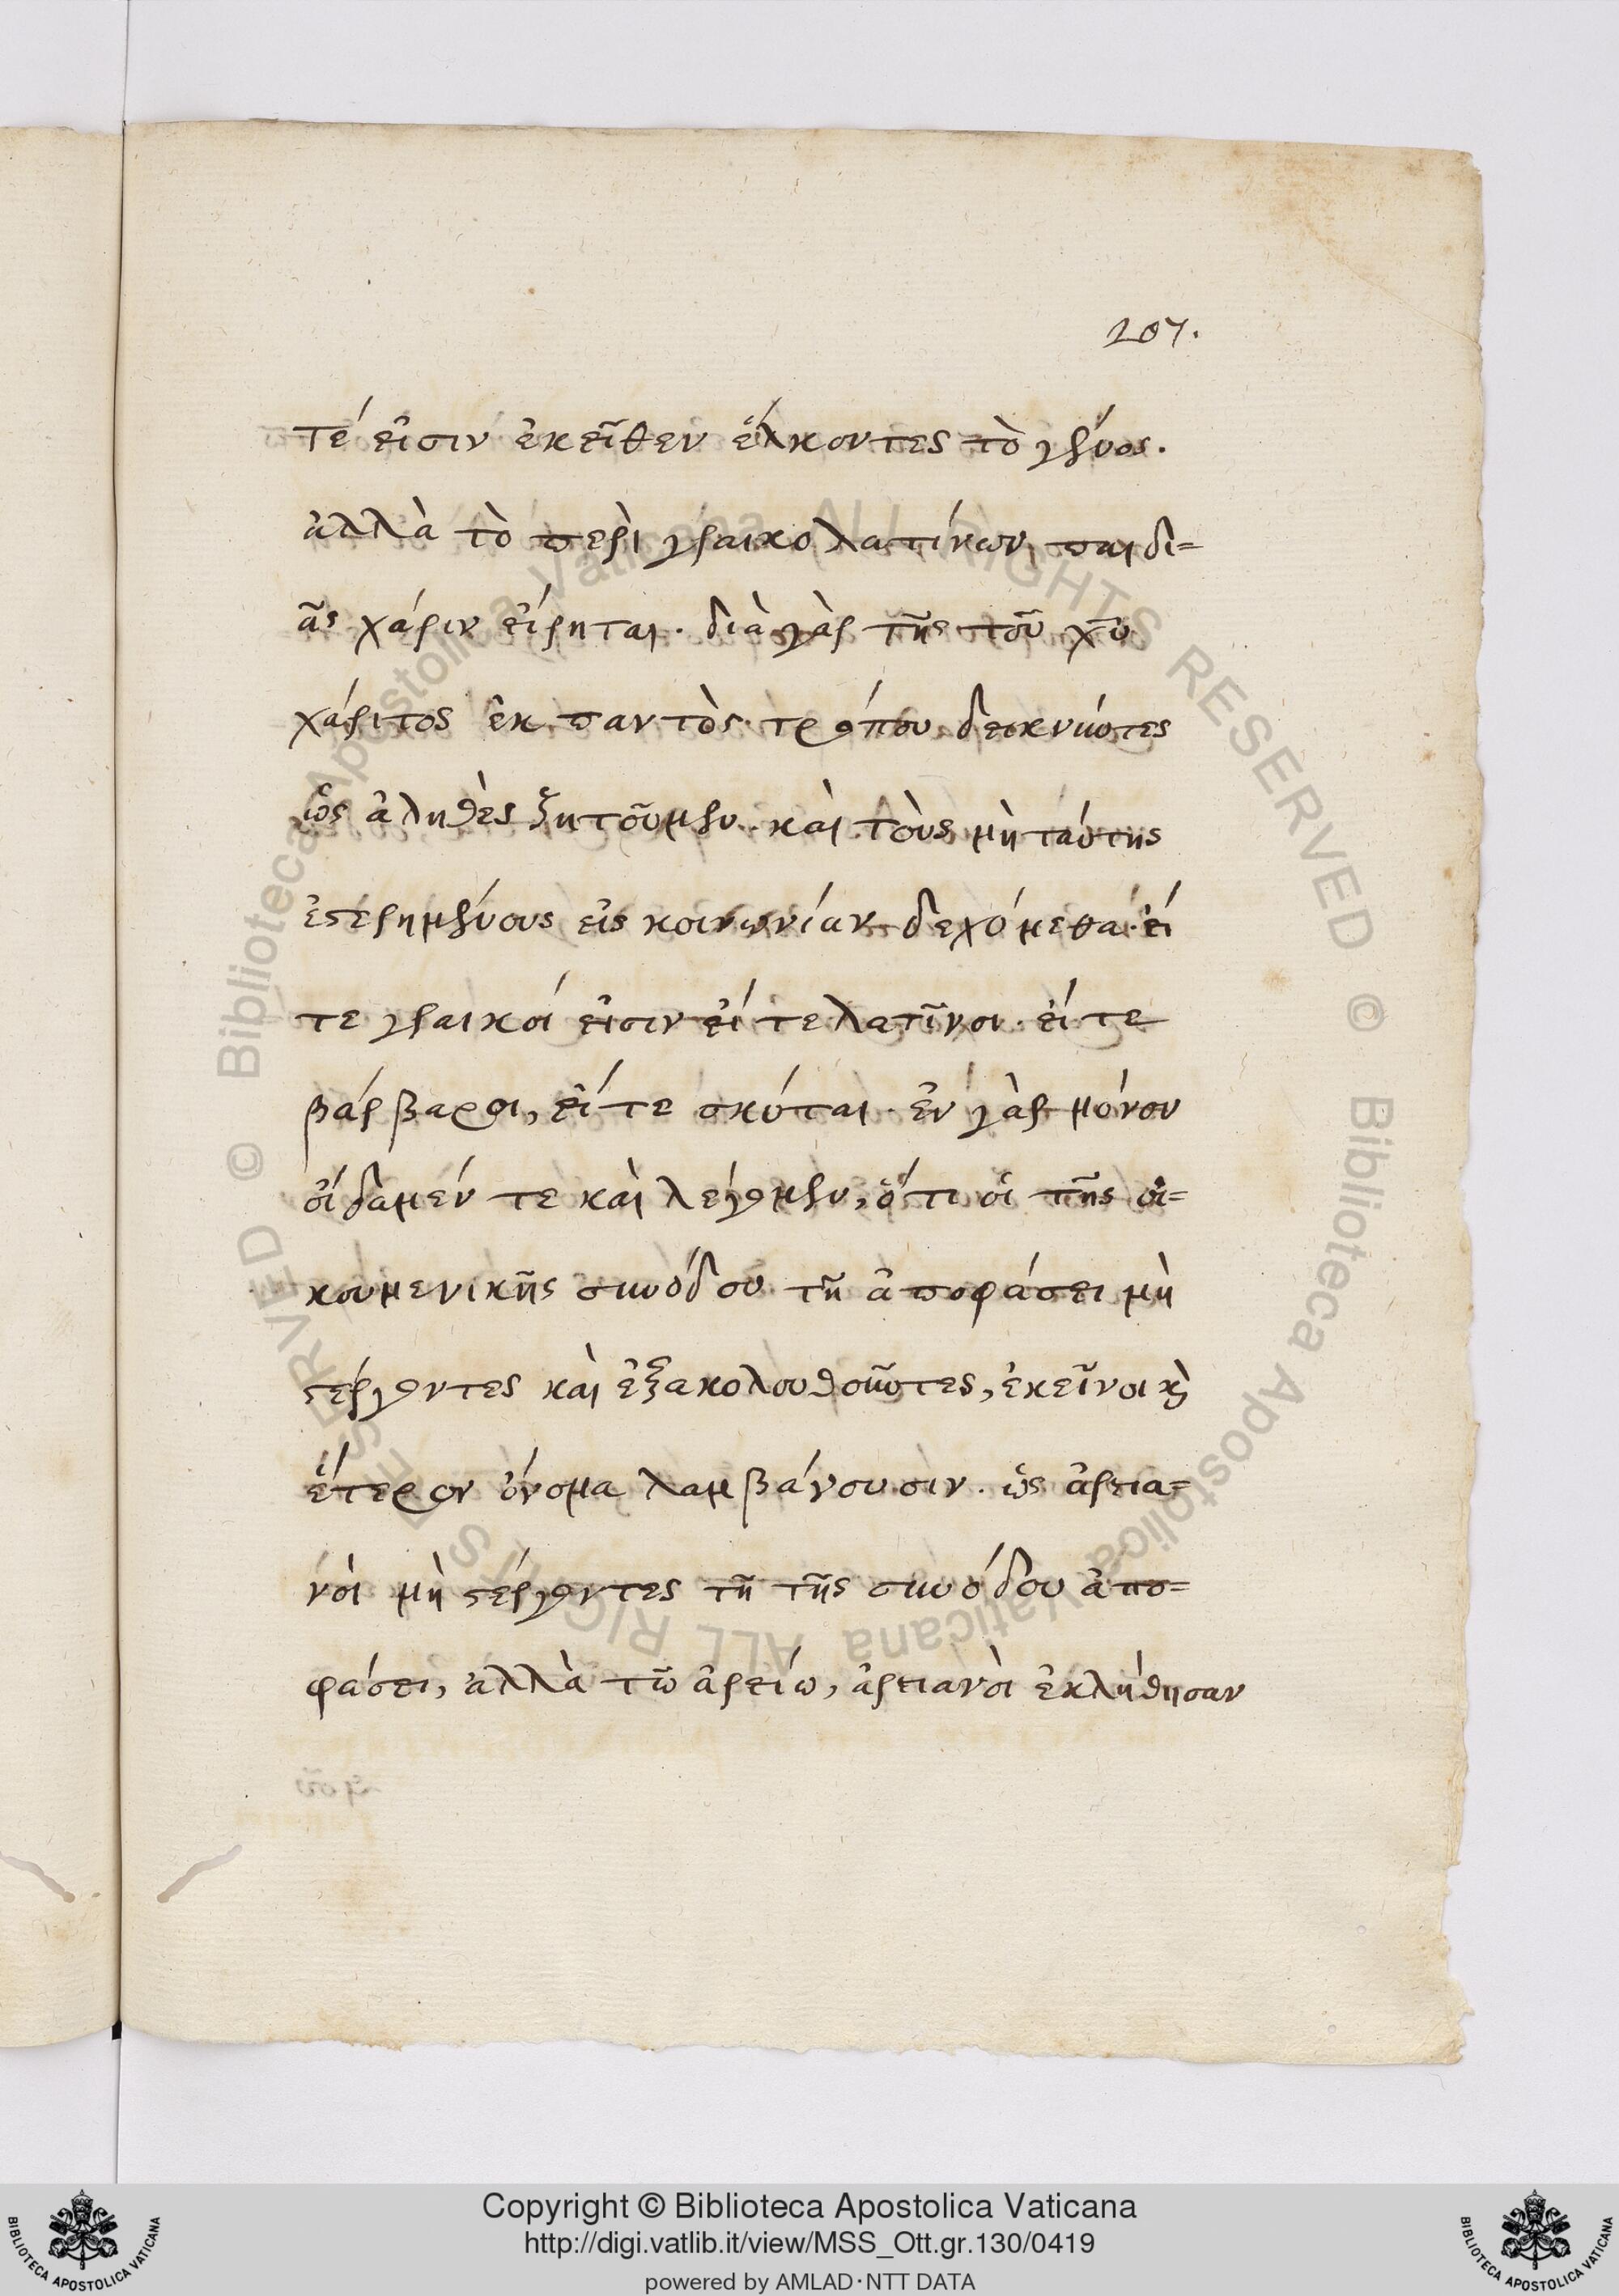 207.
τέ εἰσιν ἐκεῖθεν ἕλκοντες τὸ γένος.
ἀλλὰ τὸ περὶ γραικολατίνων παιδι=
ᾶς χάριν εἴρηται. διὰ γὰρ τῆς τοῦ χῦ
χάριτος ἐκ παντὸς τρόπου δεικνύντες
ὡς ἀληθὲς ζητοῦμεν. καὶ τοὺς μὴ ταύτης
ἐστερημένους εἰς κοινωνίαν δεχόμεθα. εἴ
τε γραικοί εἰσιν εἴ τε λατῖνοι. εἴ τε
βάρβαροι, εἴ τε σκύται. ἐν γὰρ μόνον
οἴδαμέν τε καὶ λέγομεν, ὅτι οἱ τῆς οἰ=
κουμενικῆς συνόδου τῇ ἀποφάσει μὴ
στέργοντες καὶ ἐξακολουθοῦντες, ἐκεῖνοι καὶ
ἕτερον ὄνομα λαμβάνουσιν. ὡς ἀρεια=
νοὶ μὴ στέργοντες τῇ τῆς συνόδου ἀπο=
φάσει, ἀλλὰ τῶ ἀρείω, ἀρειανοὶ ἐκλήθησαν
Copyright © Biblioteca Apostolica Vaticana
http://digi.vatlib.it/view/MSS_Ott.gr.130/0419
powered by AMLAD·NTT DATA
BIBLIOTECA APOSTOLICA VATICANA
BIBLIOTECA APOSTOLICA VATICANA
© Biblioteca Apostolica Vaticana ALL RIGHTS RESERVED © Biblioteca Apostolica Vaticana ALL RIGHTS RESERVED